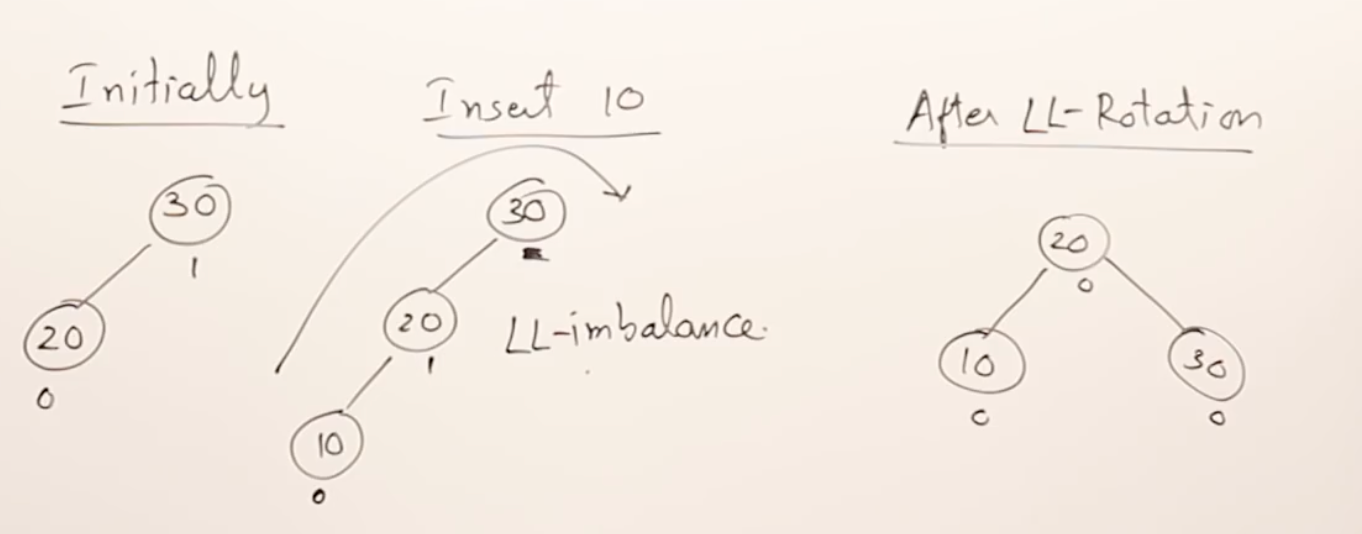 Initially
30
1
20
0
Insert 10
30
20
1
10
0
LL-imbalance.
After LL-Rotation
20
0
10
0
30
0